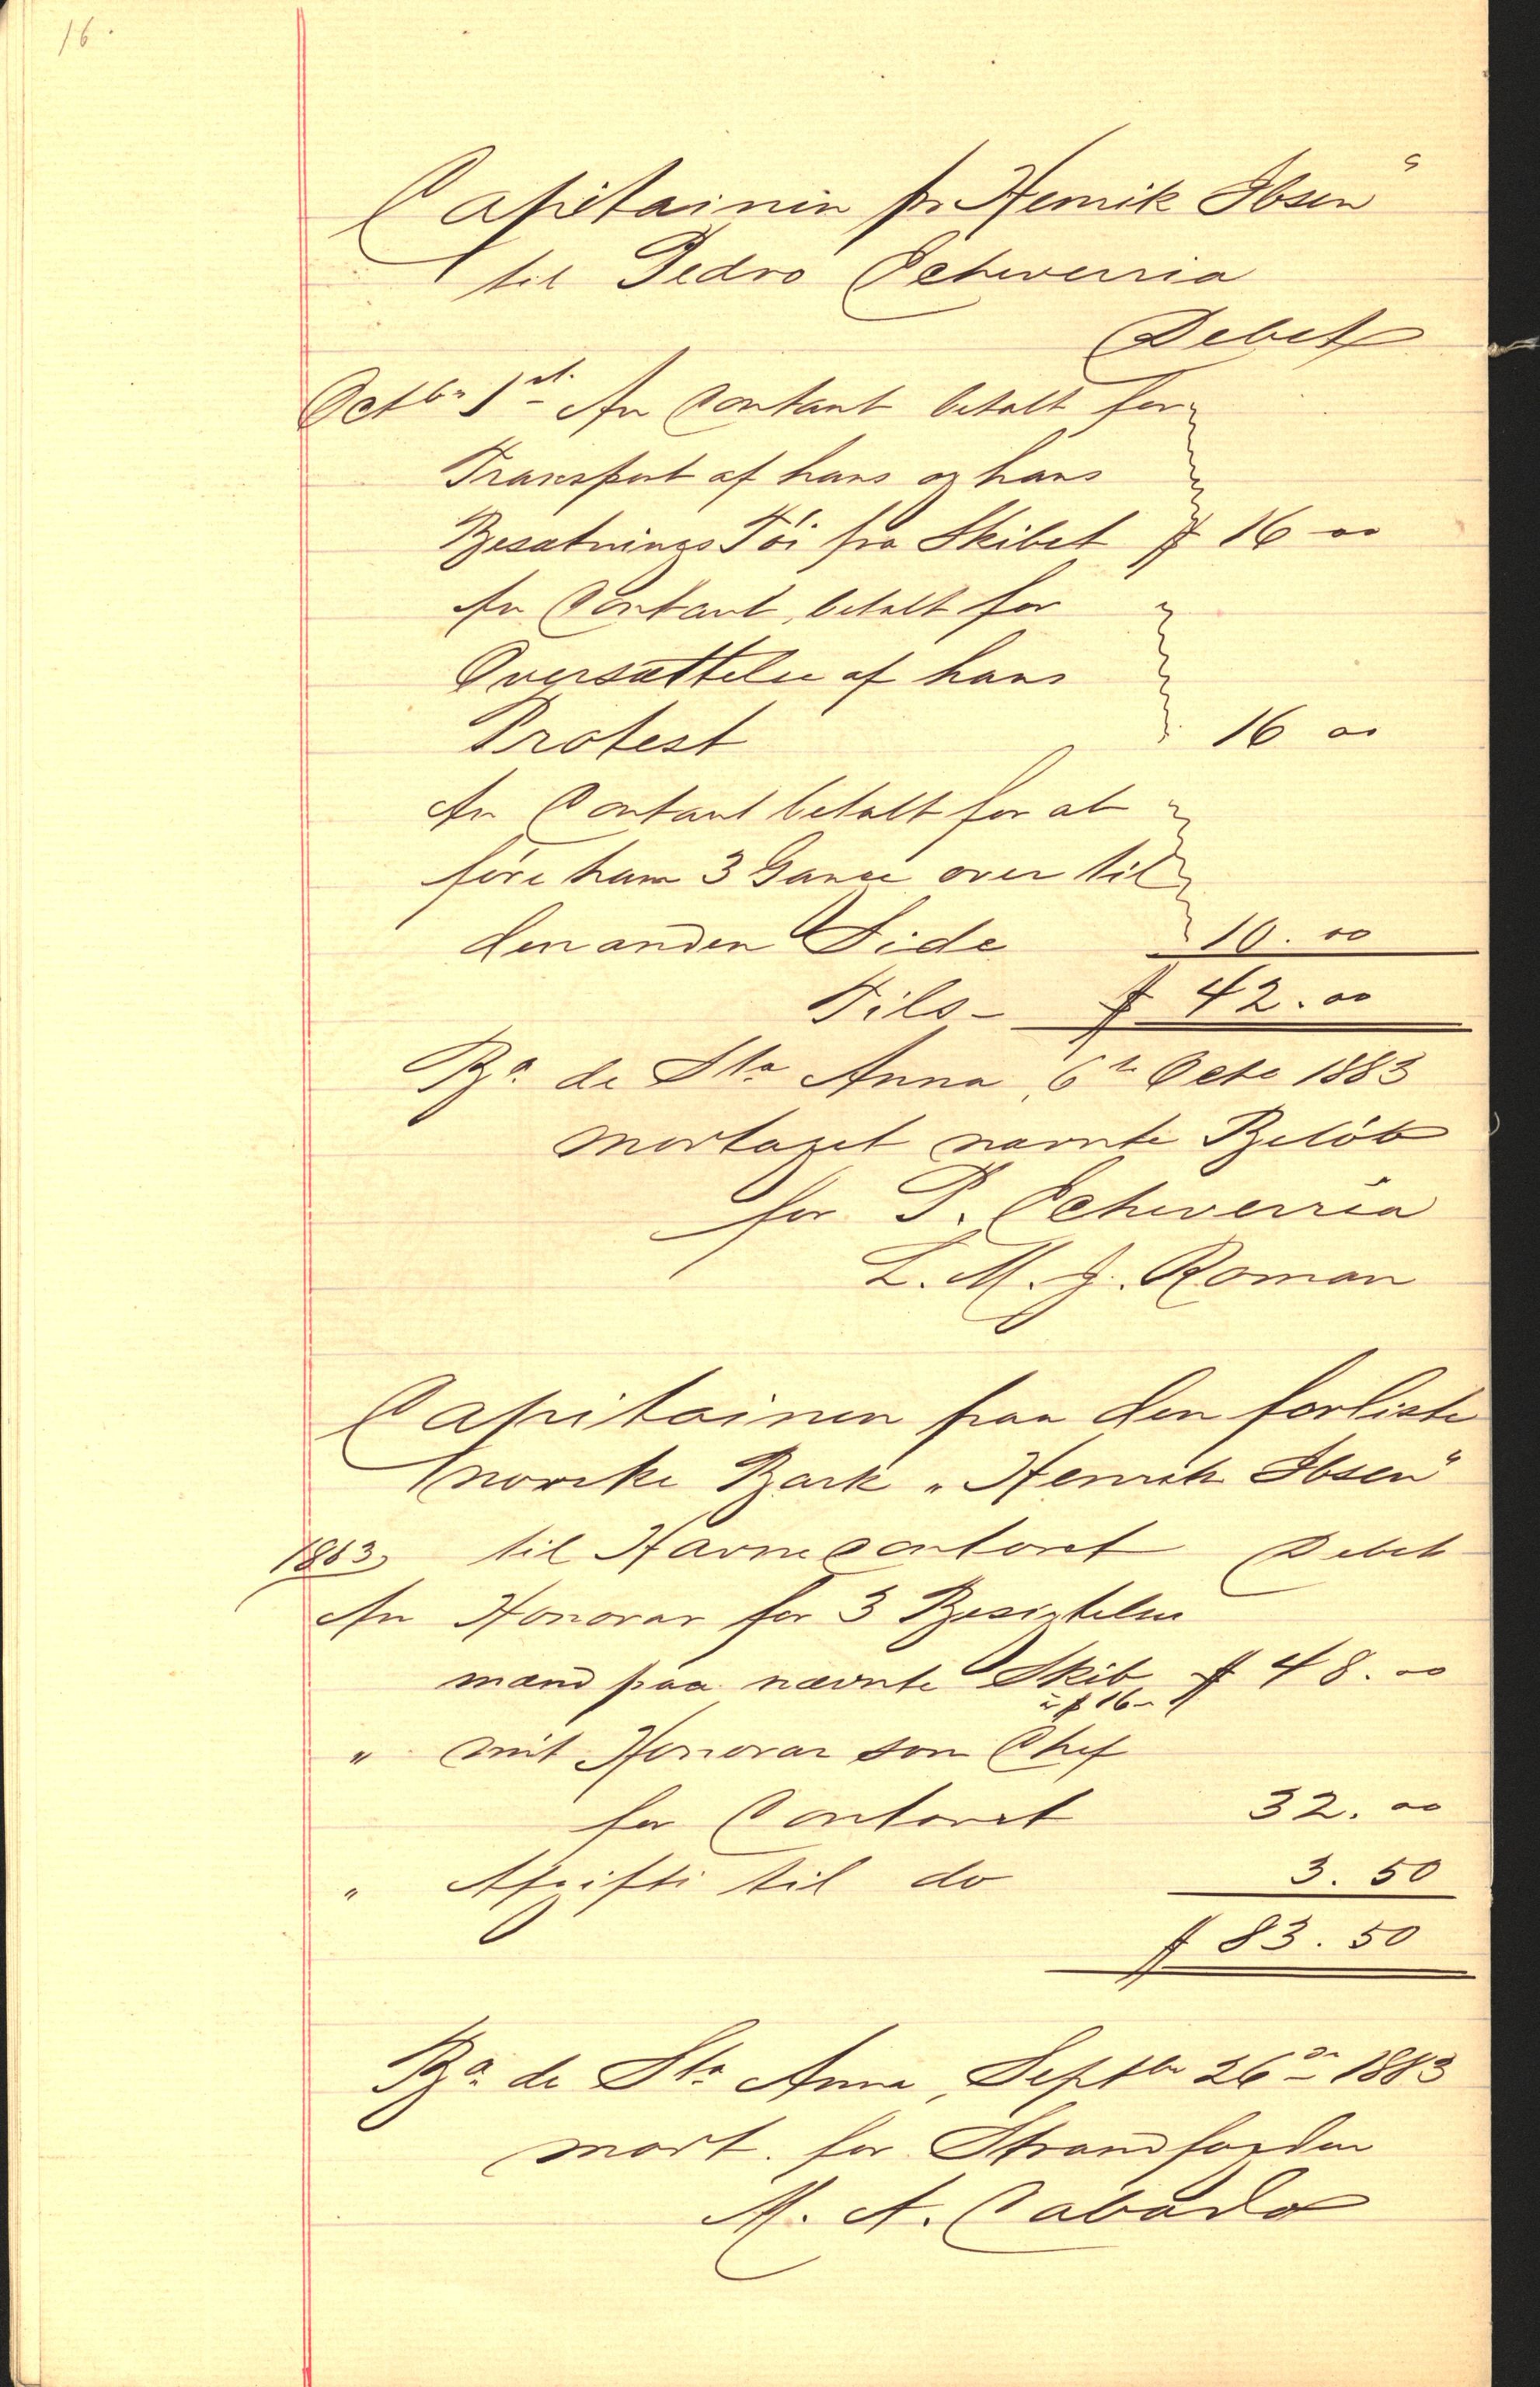 16.
Capitainen pr Henrik Ibsen"
til Pedro Echeverria
Debet
Octbr 1st An Contant betalt for
Transport af hans og hans
Besætnings Töi fra Skibet $ 16 00
An Contant, betalt for
Oversættelse af hans
Protest 16 00
An Contant betalt for at
före ham 3 Gange over til
den anden Side 10.00
Tils- $ 42.00
Ba. de Sta Anna, 6te Octo 1883
modtaget nævnte Belöb
for P. Echeverria
L. M. J. Roman
Capitainen paa den forliste
norske Bark "Henrik Ibsen"
1883 til Havnecontoret Debet
An Honorar for 3 Besigtelses
mænd paa nævnte Skib $ 48.00
à $ 16-
" mit Honorar som Chef
for Contoret 32.00
" Afgifter til do 3.50
$ 83.50
Ba. de Sta. Anna, Septbr 26de 1883
modt. for Strandfogden
M. A.